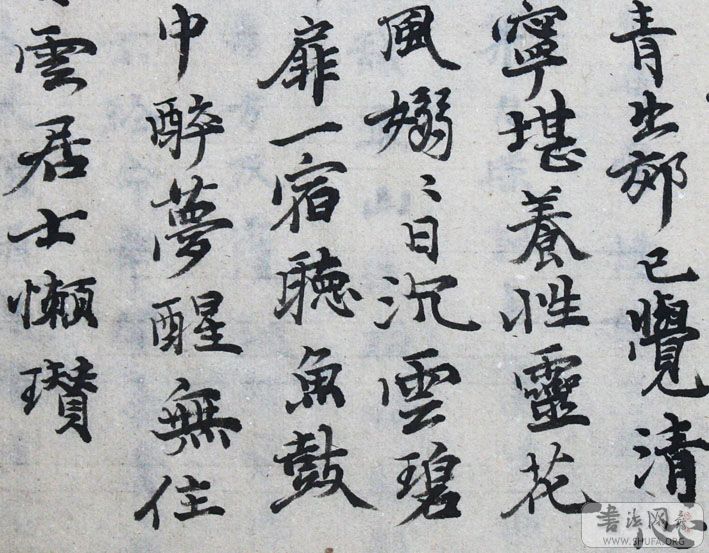 青出郊已覺清
寧堪養性靈花
風嫋〻日沉雲碧
扉一宿聽魚鼓
中醉夢醒無住
雲居士懶瓚
書法网
WWW.SHUFA.ORG